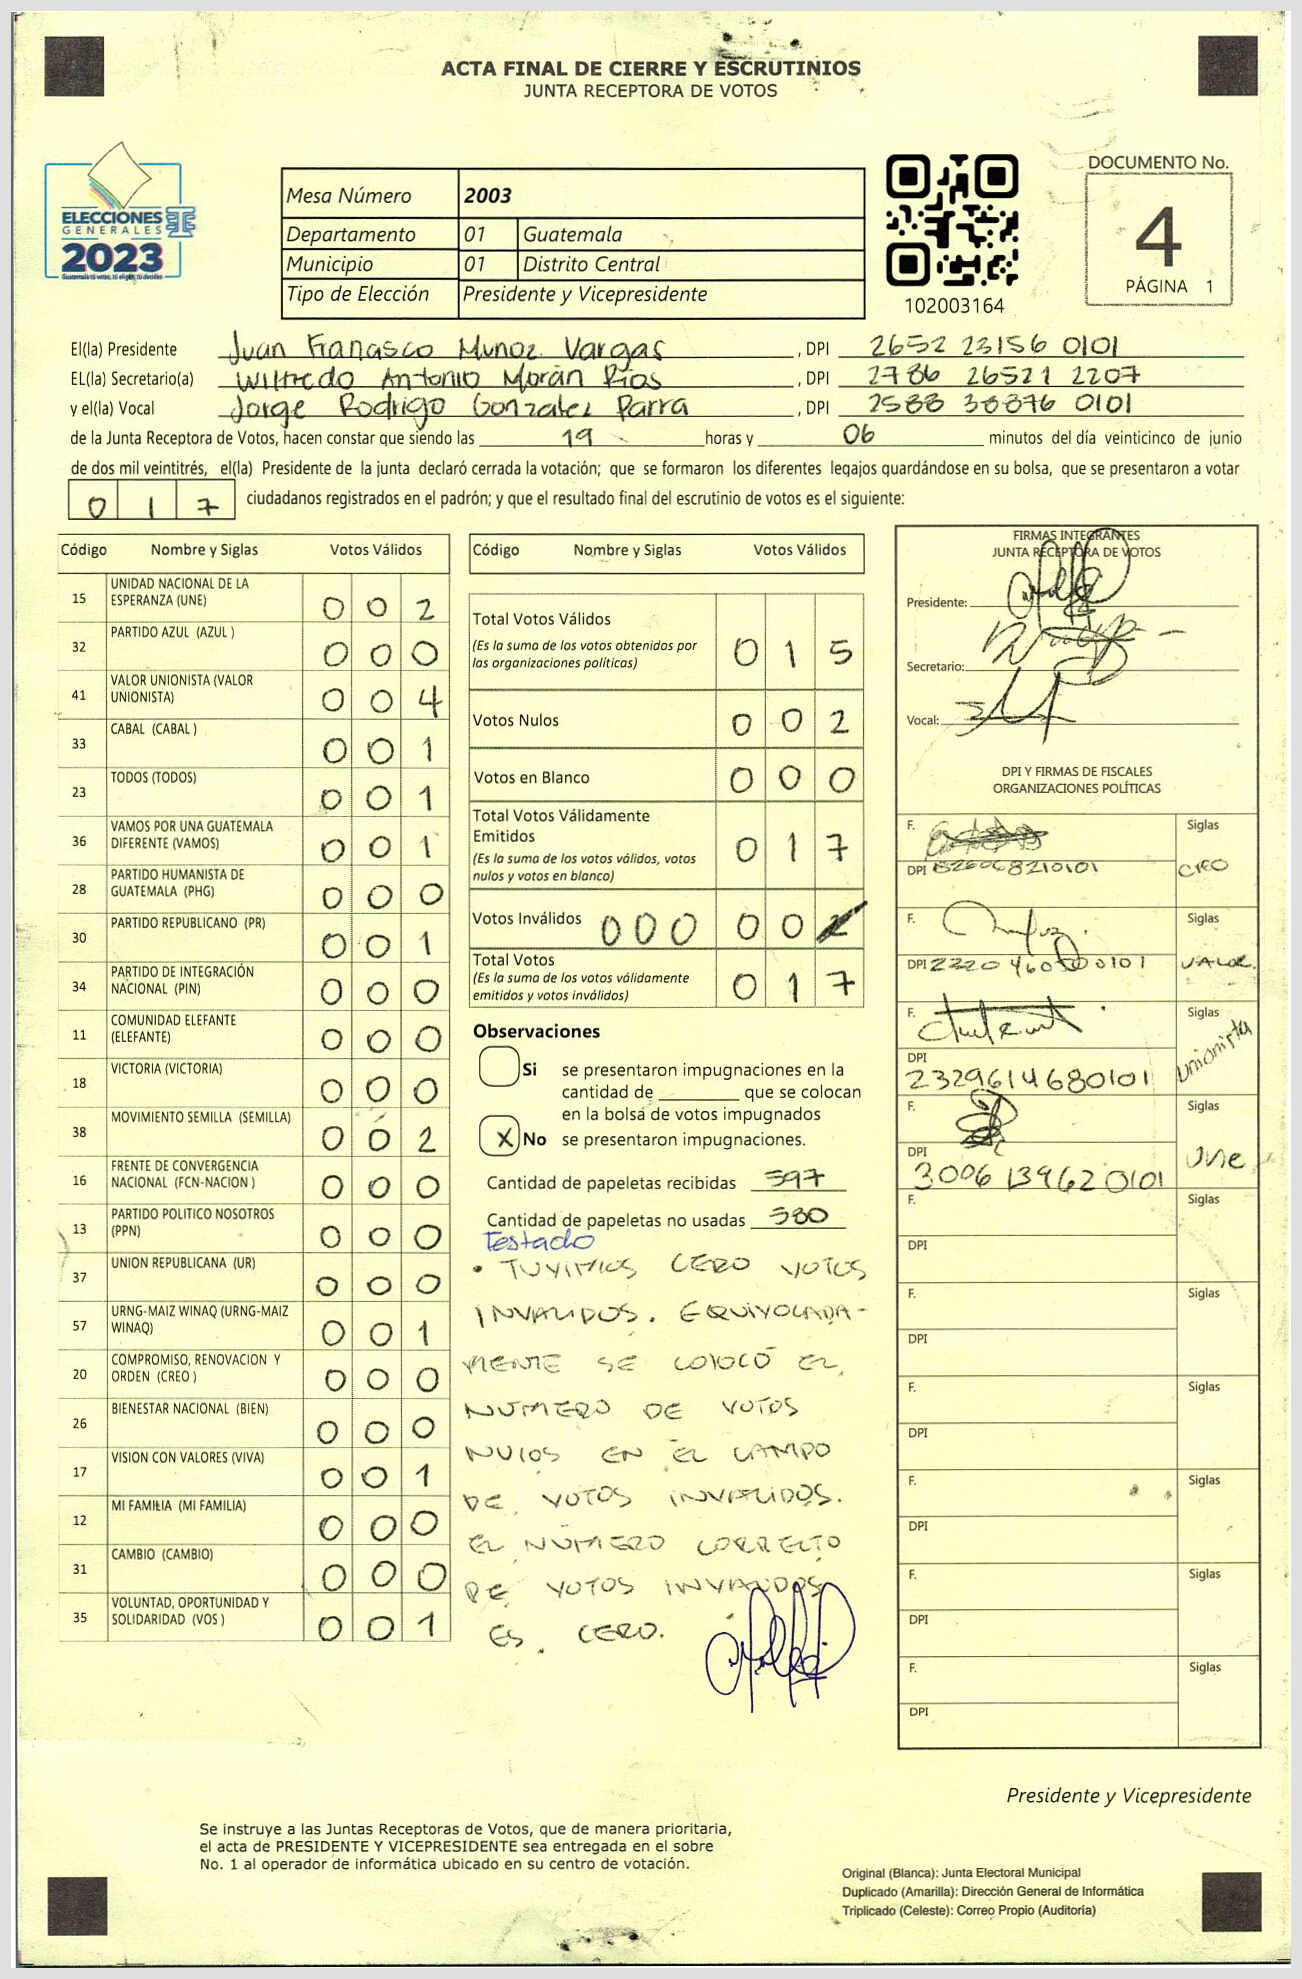 ACTA FINAL DE CIERRE Y ESCRUTINIOS
JUNTA RECEPTORA DE VOTOS
ELECCIONES
GENERALES
2023
Mesa Número 2003
Departamento 01 Guatemala
Municipio 01 Distrito Central
Tipo de Elección Presidente y Vicepresidente
102003164
DOCUMENTO No.
4
PÁGINA 1
El(la) Presidente Juan Franasco Muñoz Vargas, DPI 2652 23156 0101
EL(la) Secretario(a) Wilfredo Antonio Morán Rios, DPI 2786 26521 2207
y el(la) Vocal Jorge Rodrigo Gonzalez Parra, DPI 2588 38876 0101
de la Junta Receptora de Votos, hacen constar que siendo las 19 horas y 06 minutos del día veinticinco de junio
de dos mil veintitrés, el(la) Presidente de la junta declaró cerrada la votación; que se formaron los diferentes legajos guardándose en su bolsa, que se presentaron a votar
0 1 7 ciudadanos registrados en el padrón; y que el resultado final del escrutinio de votos es el siguiente:
Código Nombre y Siglas Votos Válidos
15 UNIDAD NACIONAL DE LA ESPERANZA (UNE) 0 0 2
32 PARTIDO AZUL (AZUL ) 0 0 0
41 VALOR UNIONISTA (VALOR UNIONISTA) 0 0 4
33 CABAL (CABAL ) 0 0 1
23 TODOS (TODOS) 0 0 1
36 VAMOS POR UNA GUATEMALA DIFERENTE (VAMOS) 0 0 1
28 PARTIDO HUMANISTA DE GUATEMALA (PHG) 0 0 0
30 PARTIDO REPUBLICANO (PR) 0 0 1
34 PARTIDO DE INTEGRACIÓN NACIONAL (PIN) 0 0 0
11 COMUNIDAD ELEFANTE (ELEFANTE) 0 0 0
18 VICTORIA (VICTORIA) 0 0 0
38 MOVIMIENTO SEMILLA (SEMILLA) 0 0 2
16 FRENTE DE CONVERGENCIA NACIONAL (FCN-NACION ) 0 0 0
13 PARTIDO POLITICO NOSOTROS (PPN) 0 0 0
37 UNION REPUBLICANA (UR) 0 0 0
57 URNG-MAIZ WINAQ (URNG-MAIZ WINAQ) 0 0 1
20 COMPROMISO, RENOVACION Y ORDEN (CREO ) 0 0 0
26 BIENESTAR NACIONAL (BIEN) 0 0 0
17 VISION CON VALORES (VIVA) 0 0 1
12 MI FAMILIA (MI FAMILIA) 0 0 0
31 CAMBIO (CAMBIO) 0 0 0
35 VOLUNTAD, OPORTUNIDAD Y SOLIDARIDAD (VOS ) 0 0 1
Código Nombre y Siglas Votos Válidos
Total Votos Válidos 0 1 5
(Es la suma de los votos obtenidos por
las organizaciones políticas)
Votos Nulos 0 0 2
Votos en Blanco 0 0 0
Total Votos Válidamente
Emitidos 0 1 7
(Es la suma de los votos válidos, votos
nulos y votos en blanco)
Votos Inválidos 000 0 0 2
Total Votos 0 1 7
(Es la suma de los votos válidamente
emitidos y votos inválidos)
Observaciones
Si se presentaron impugnaciones en la
cantidad de ________ que se colocan
en la bolsa de votos impugnados
X No se presentaron impugnaciones.
Cantidad de papeletas recibidas 597
Cantidad de papeletas no usadas 580
Testado
• TUVIMOS CERO VOTOS
INVALIDOS. EQUIVOCADA-
MENTE SE COLOCÓ EL
NUMERO DE VOTOS
NULOS EN EL CAMPO
DE VOTOS INVALIDOS.
EL NÚMERO CORRECTO
DE VOTOS INVALIDOS
ES CERO.
FIRMAS INTEGRANTES
JUNTA RECEPTORA DE VOTOS
Presidente:
Secretario:
Vocal:
DPI Y FIRMAS DE FISCALES
ORGANIZACIONES POLÍTICAS
F. Siglas
DPI CREO
F. Siglas
DPI VALOR
F. Siglas
DPI Unionista
2329614680101
F. Siglas
DPI UNe
3006139620101
F. Siglas
DPI
F. Siglas
DPI
F. Siglas
DPI
F. Siglas
DPI
F. Siglas
DPI
F. Siglas
DPI
Presidente y Vicepresidente
Se instruye a las Juntas Receptoras de Votos, que de manera prioritaria,
el acta de PRESIDENTE Y VICEPRESIDENTE sea entregada en el sobre
No. 1 al operador de informática ubicado en su centro de votación.
Original (Blanca): Junta Electoral Municipal
Duplicado (Amarilla): Dirección General de Informática
Triplicado (Celeste): Correo Propio (Auditoría)